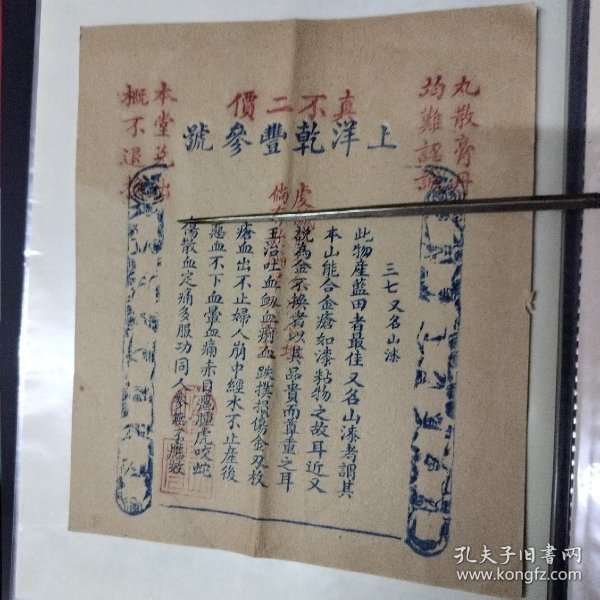 真不二價
上洋乾豐參號
丸散膏丹
均難認
本堂兑出
概不退
三七又名山漆
此物產藍田者最佳又名山漆者謂其
本山能合金瘡如漆粘物之故耳近又
說為金不換者以其品貴而尊重之耳
主治吐血衂血痢血跌撲損傷金刃杖
瘡血出不止婦人崩中經水不止產後
惡血不下血暈血痛赤目癰腫虎咬蛇
傷散血定痛多服功同人參無不應效
孔夫子旧书网
www.kongfz.com